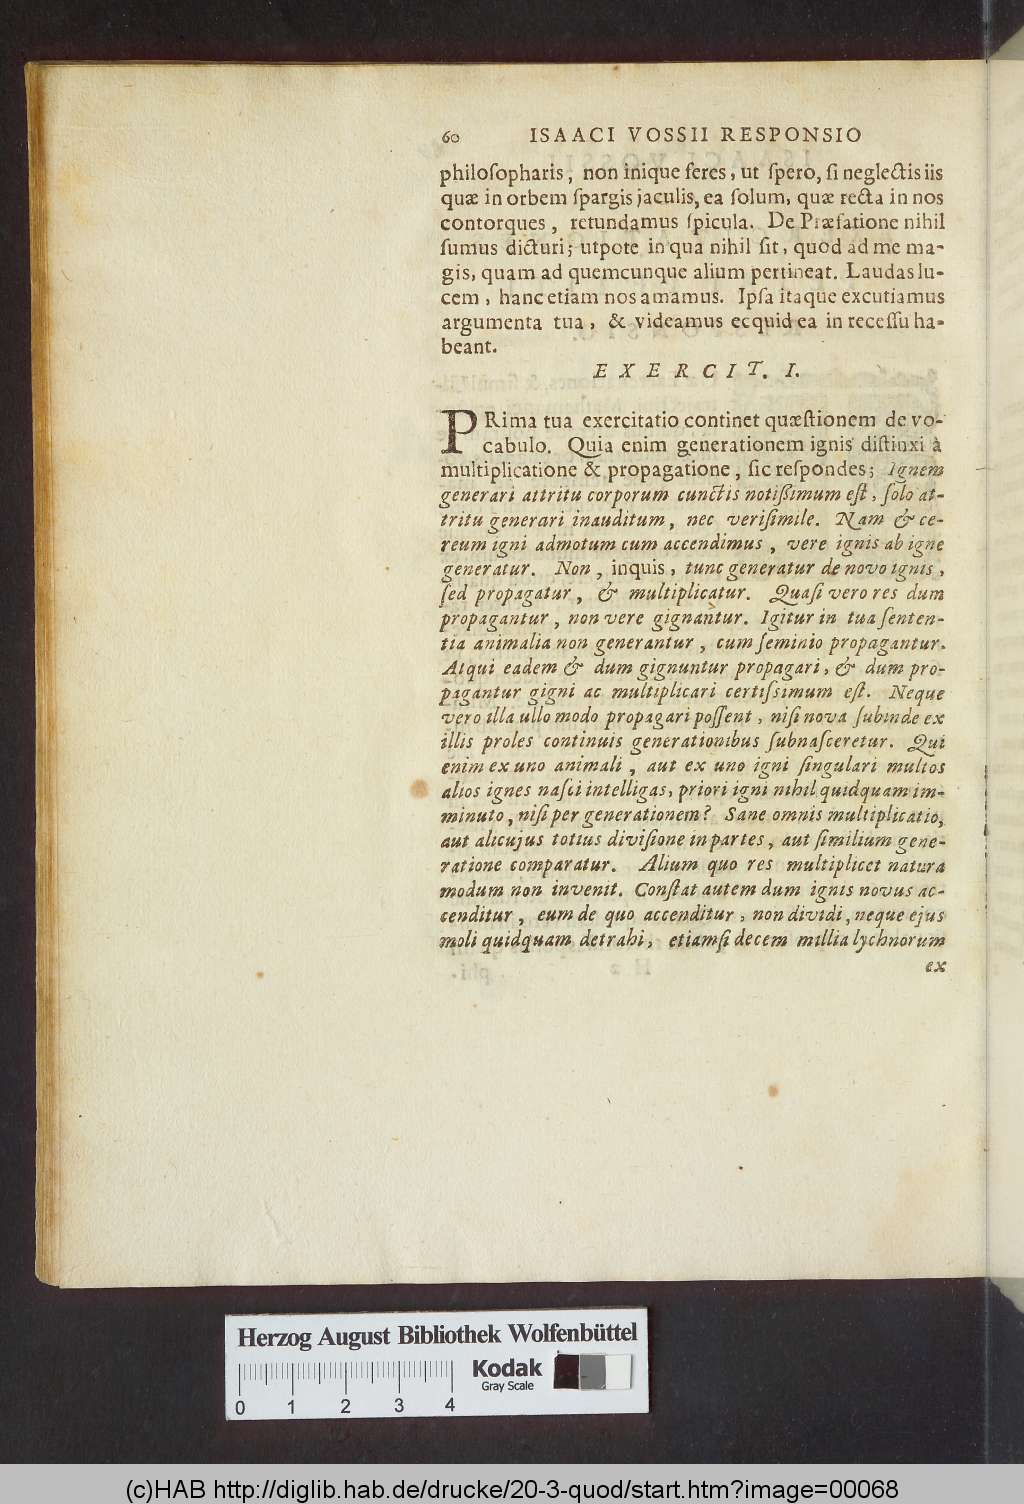 60 ISAACI VOSSII RESPONSIO
philoſopharis, non inique feres, ut ſpero, ſi neglectis iis
quæ in orbem ſpargis jaculis, ea ſolum, quæ recta in nos
contorques, retundamus ſpicula. De Præfatione nihil
ſumus dicturi; utpote in qua nihil ſit, quod ad me ma-
gis, quam ad quemcunque alium pertineat. Laudas lu-
cem, hanc etiam nos amamus. Ipſa itaque excutiamus
argumenta tua, & videamus ecquid ea in receſſu ha-
beant.
EXERCIT. I.
PRima tua exercitatio continet quæſtionem de vo-
cabulo. Quia enim generationem ignis diſtinxi à
multiplicatione & propagatione, ſic reſpondes; Ignem
generari attritu corporum cunctis notiſsimum eſt, ſolo at-
tritu generari inauditum, nec veriſimile. Nam & ce-
reum igni admotum cum accendimus, vere ignis ab igne
generatur. Non, inquis, tunc generatur de novo ignis,
ſed propagatur, & multiplicatur. Quaſi vero res dum
propagantur, non vere gignantur. Igitur in tua ſenten-
tia animalia non generantur, cum ſeminio propagantur.
Atqui eadem & dum gignuntur propagari, & dum pro-
pagantur gigni ac multiplicari certiſsimum eſt. Neque
vero illa ullo modo propagari poſſent, niſi nova ſubinde ex
illis proles continuis generationibus ſubnaſceretur. Qui
enim ex uno animali, aut ex uno igni ſingulari multos
alios ignes naſci intelligas, priori igni nihil quidquam im-
minuto, niſi per generationem? Sane omnis multiplicatio,
aut alicujus totius diviſione in partes, aut ſimilium gene-
ratione comparatur. Alium quo res multiplicet natura
modum non invenit. Conſtat autem dum ignis novus ac-
cenditur, eum de quo accenditur, non dividi, neque ejus
moli quidquam detrahi, etiamſi decem millia lychnorum
ex
Herzog August Bibliothek Wolfenbüttel
Kodak
Gray Scale
0 1 2 3 4
(c)HAB http://diglib.hab.de/drucke/20-3-quod/start.htm?image=00068